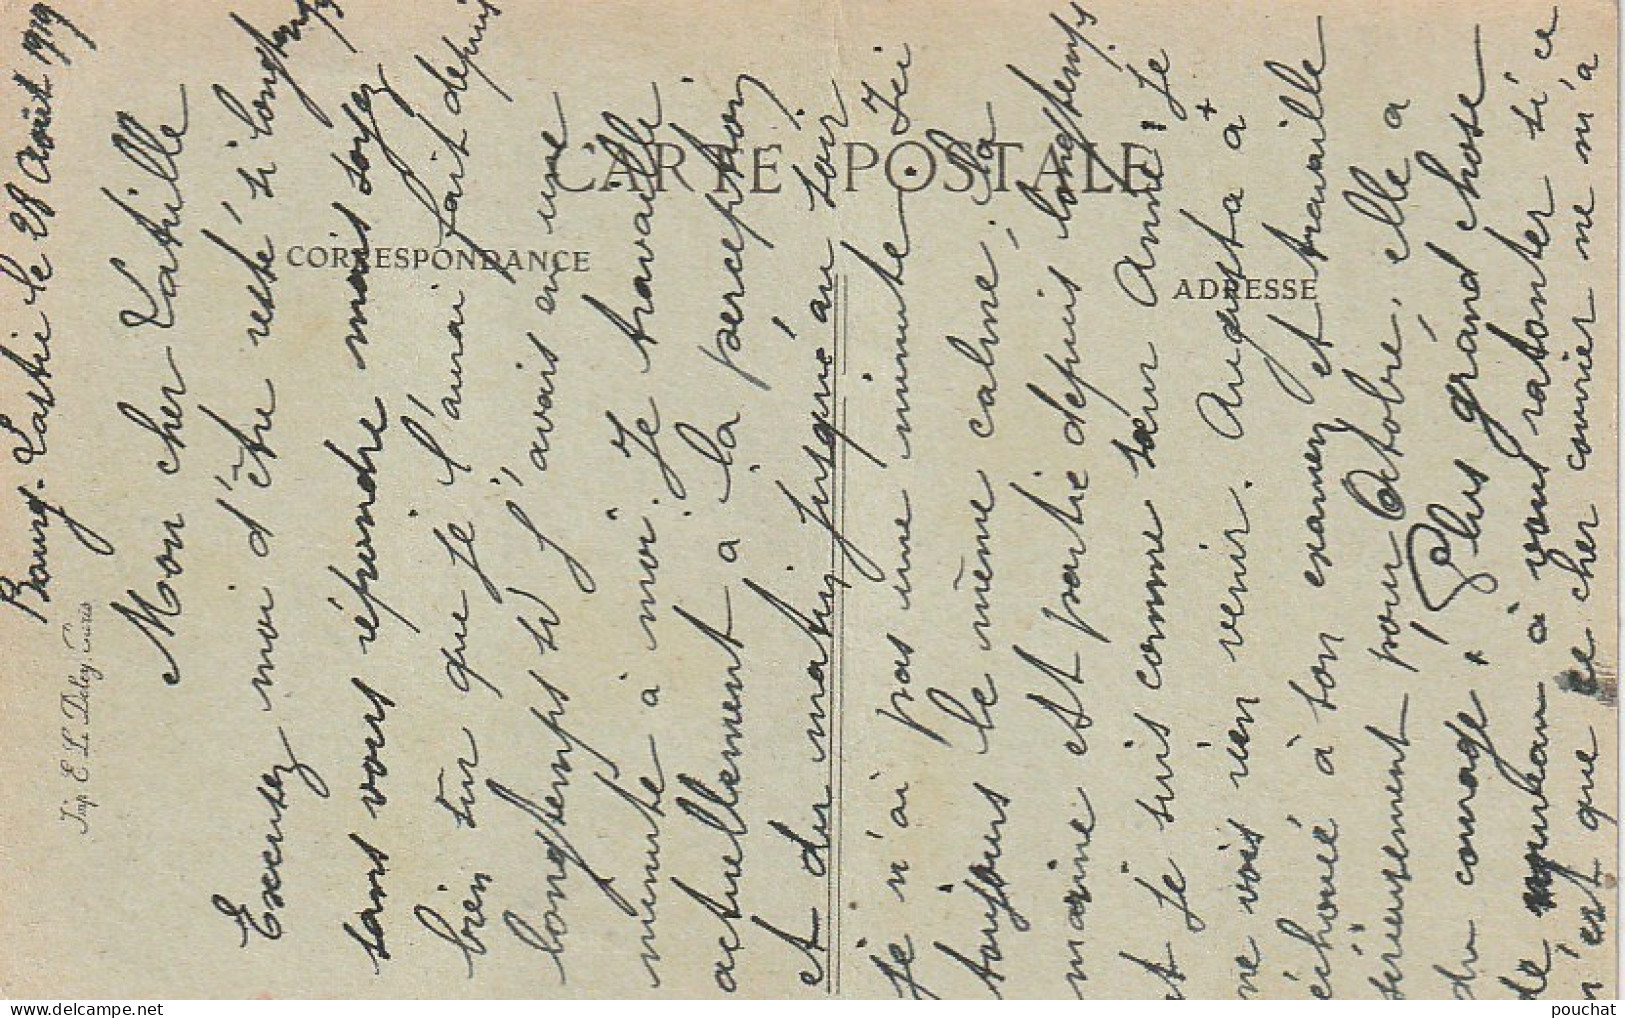 Bourg-Lastic le 28 Août 1919
Mon cher Latrille
Excusez moi d'être resté si longtemps
sans vous répondre mais soyez
bien sur que je l'aurai fait depuis
longtemps si j'avais eu une
minute à moi. Je travaille
actuellement à la perception
et du matin jusqu'au soir
je n'ai pas une minute. Ici
toujours le même calme, la
marine est partie depuis longtemps
et je suis comme sœur Anne, je
ne vois rien venir. Augusta a
échoué à son examen et travaille
sérieusement pour Octobre, elle a
du courage! Plus grand chose
de nouveau à vous raconter si ce
n'est que ce cher courrier ne m'a
CARTE POSTALE
CORRESPONDANCE
ADRESSE
Imp. E. Le Deley, Paris
pouchat